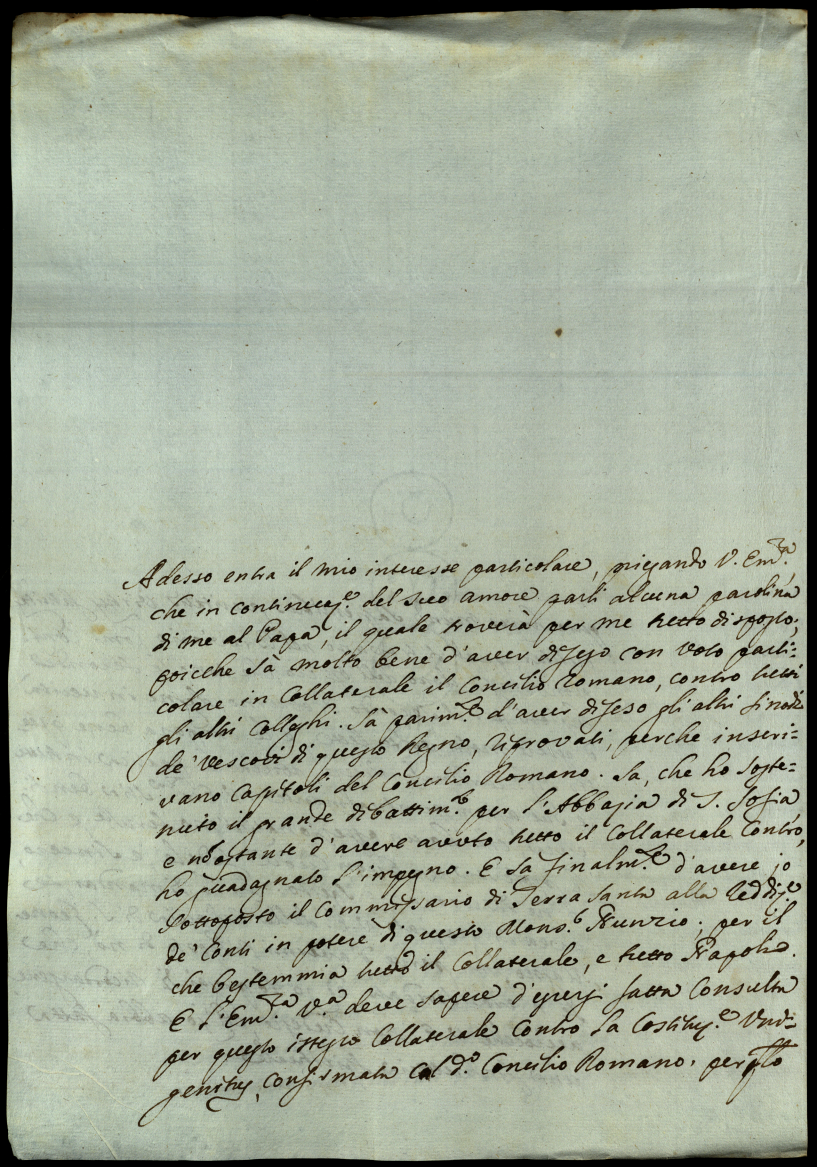 Adesso entra il mio interesse particolare, priegando V. Em.za,
che in continuaz.e del suo amore parli alcuna parolina
di me al Papa, il quale troverà per me tutto disposto;
poicche sà molto bene d'aver difeso con voto parti-
colare in Collaterale il Concilio Romano, contro tutti
gli altri Colleghi. Sà parim.te d'aver difeso gli altri sinodi
de' Vescovi di questo Regno, riprovati, perche inseri-
vano Capitoli del Concilio Romano. Sa, che ho soste-
nuto il grande dibattim.to per l'Abbazia di S. Sofia,
e nõostante d'avere avuto tutto il Collaterale Contro,
ho guadagnato l'impegno. E sà finalm.te d'avere io
sottoposto il Commissario di Terra Santa alla reddiz.e
de' Conti in potere di questo Mons.r Nunzio; per il
che bestemmia tutto il Collaterale, e tutto Napoli.
E l'Em.za V.a deve sapere d'essersi fatta Consulta
per questo istesso Collaterale Contro la Costituz.e Uni-
genitus, confirmata col d.o Concilio Romano. per q̃sto